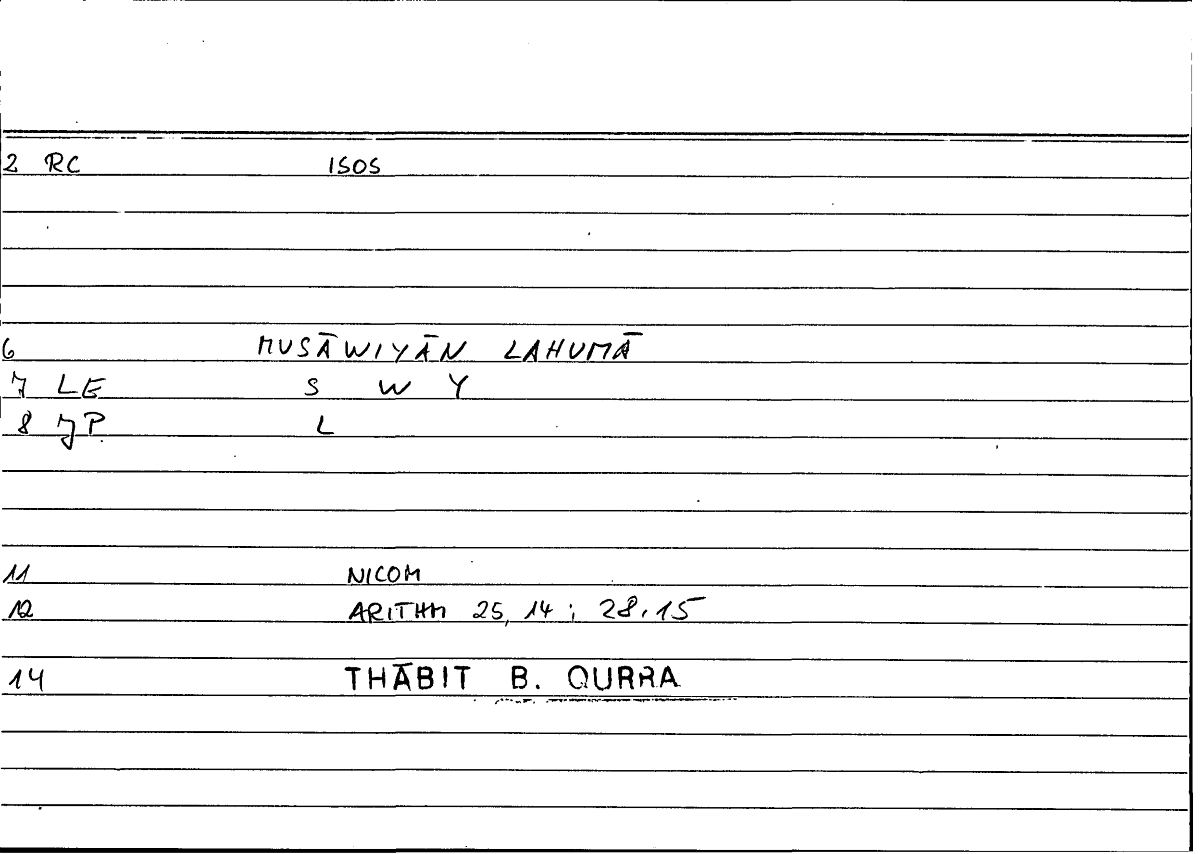 2 RC ISOS
6 MUSĀWIYĀN LAHUMĀ
7 LE S W Y
8 JP L
11 NICOM
12 ARITHM 25, 14 ; 28.15
14 THĀBIT B. QURRA